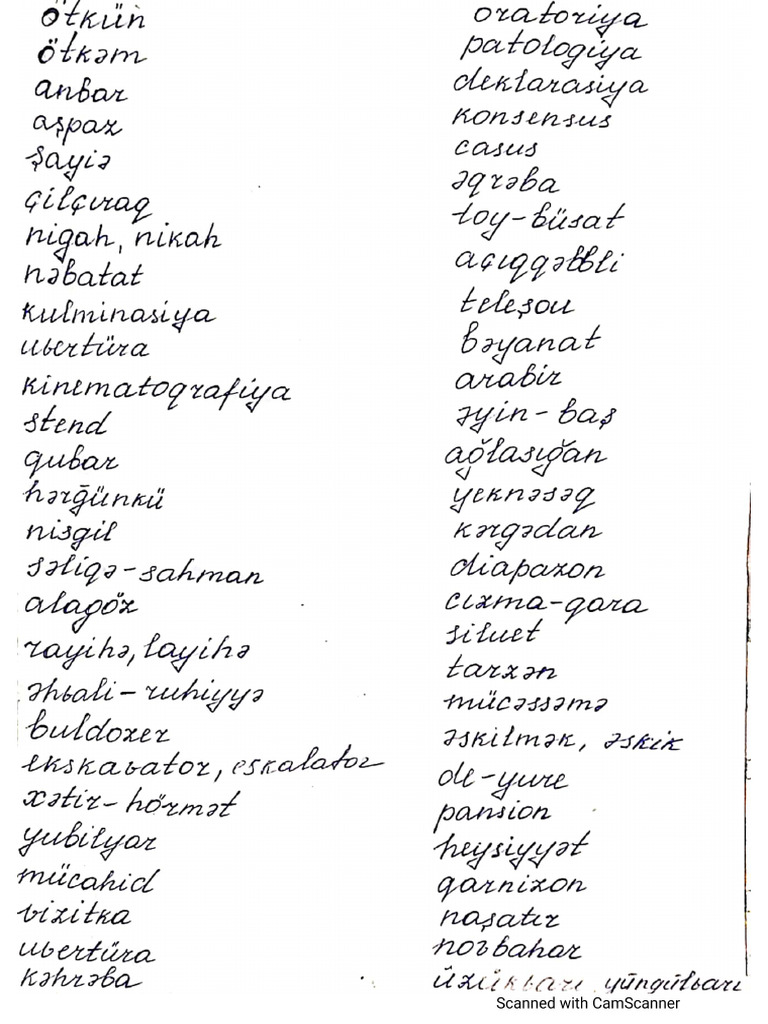 ötkün
ötkəm
anbar
aşpaz
şayiə
çilçıraq
nigah, nikah
nəbatat
kulminasiya
uvertüra
kinematoqrafiya
stend
qubar
hərgünkü
nisgil
səliqə-sahman
alagöz
rayihə, layihə
əhvali-ruhiyyə
buldozer
ekskavator, eskalator
xətir-hörmət
yubilyar
mücahid
vizitka
uvertüra
kəhrəba
oratoriya
patologiya
deklarasiya
konsensus
casus
əqrəba
toy-büsat
açıqqəlbli
teleşou
bəyanat
arabir
əyin-baş
ağlasığan
yeknəsəq
kərgədan
diapazon
cızma-qara
siluet
tarzən
mücəssəmə
əskilmək, əskik
de-yure
pansion
heysiyyət
qarnizon
naşatır
novbahar
üzükvarı yüngülvarı
Scanned with CamScanner